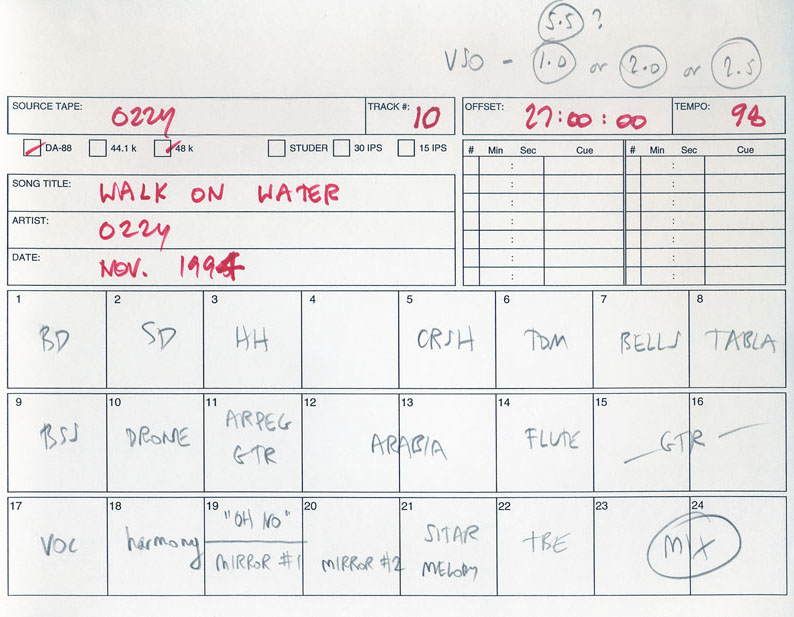 5.5 ?
VSO - 1.0 or 2.0 or 2.5
SOURCE TAPE: OZZY TRACK #: 10 OFFSET: 27:00:00 TEMPO: 98
DA-88 44.1 k 48 k STUDER 30 IPS 15 IPS
# Min Sec Cue # Min Sec Cue
SONG TITLE: WALK ON WATER
ARTIST: OZZY
DATE: NOV. 1994
1 2 3 4 5 6 7 8
BD SD HH CRSH TOM BELLS TABLA
9 10 11 12 13 14 15 16
BSS DRONE ARPEG GTR ARABIA FLUTE GTR
17 18 19 20 21 22 23 24
VOC harmony "OH NO" MIRROR #1 MIRROR #2 SITAR MELODY TBE MIX